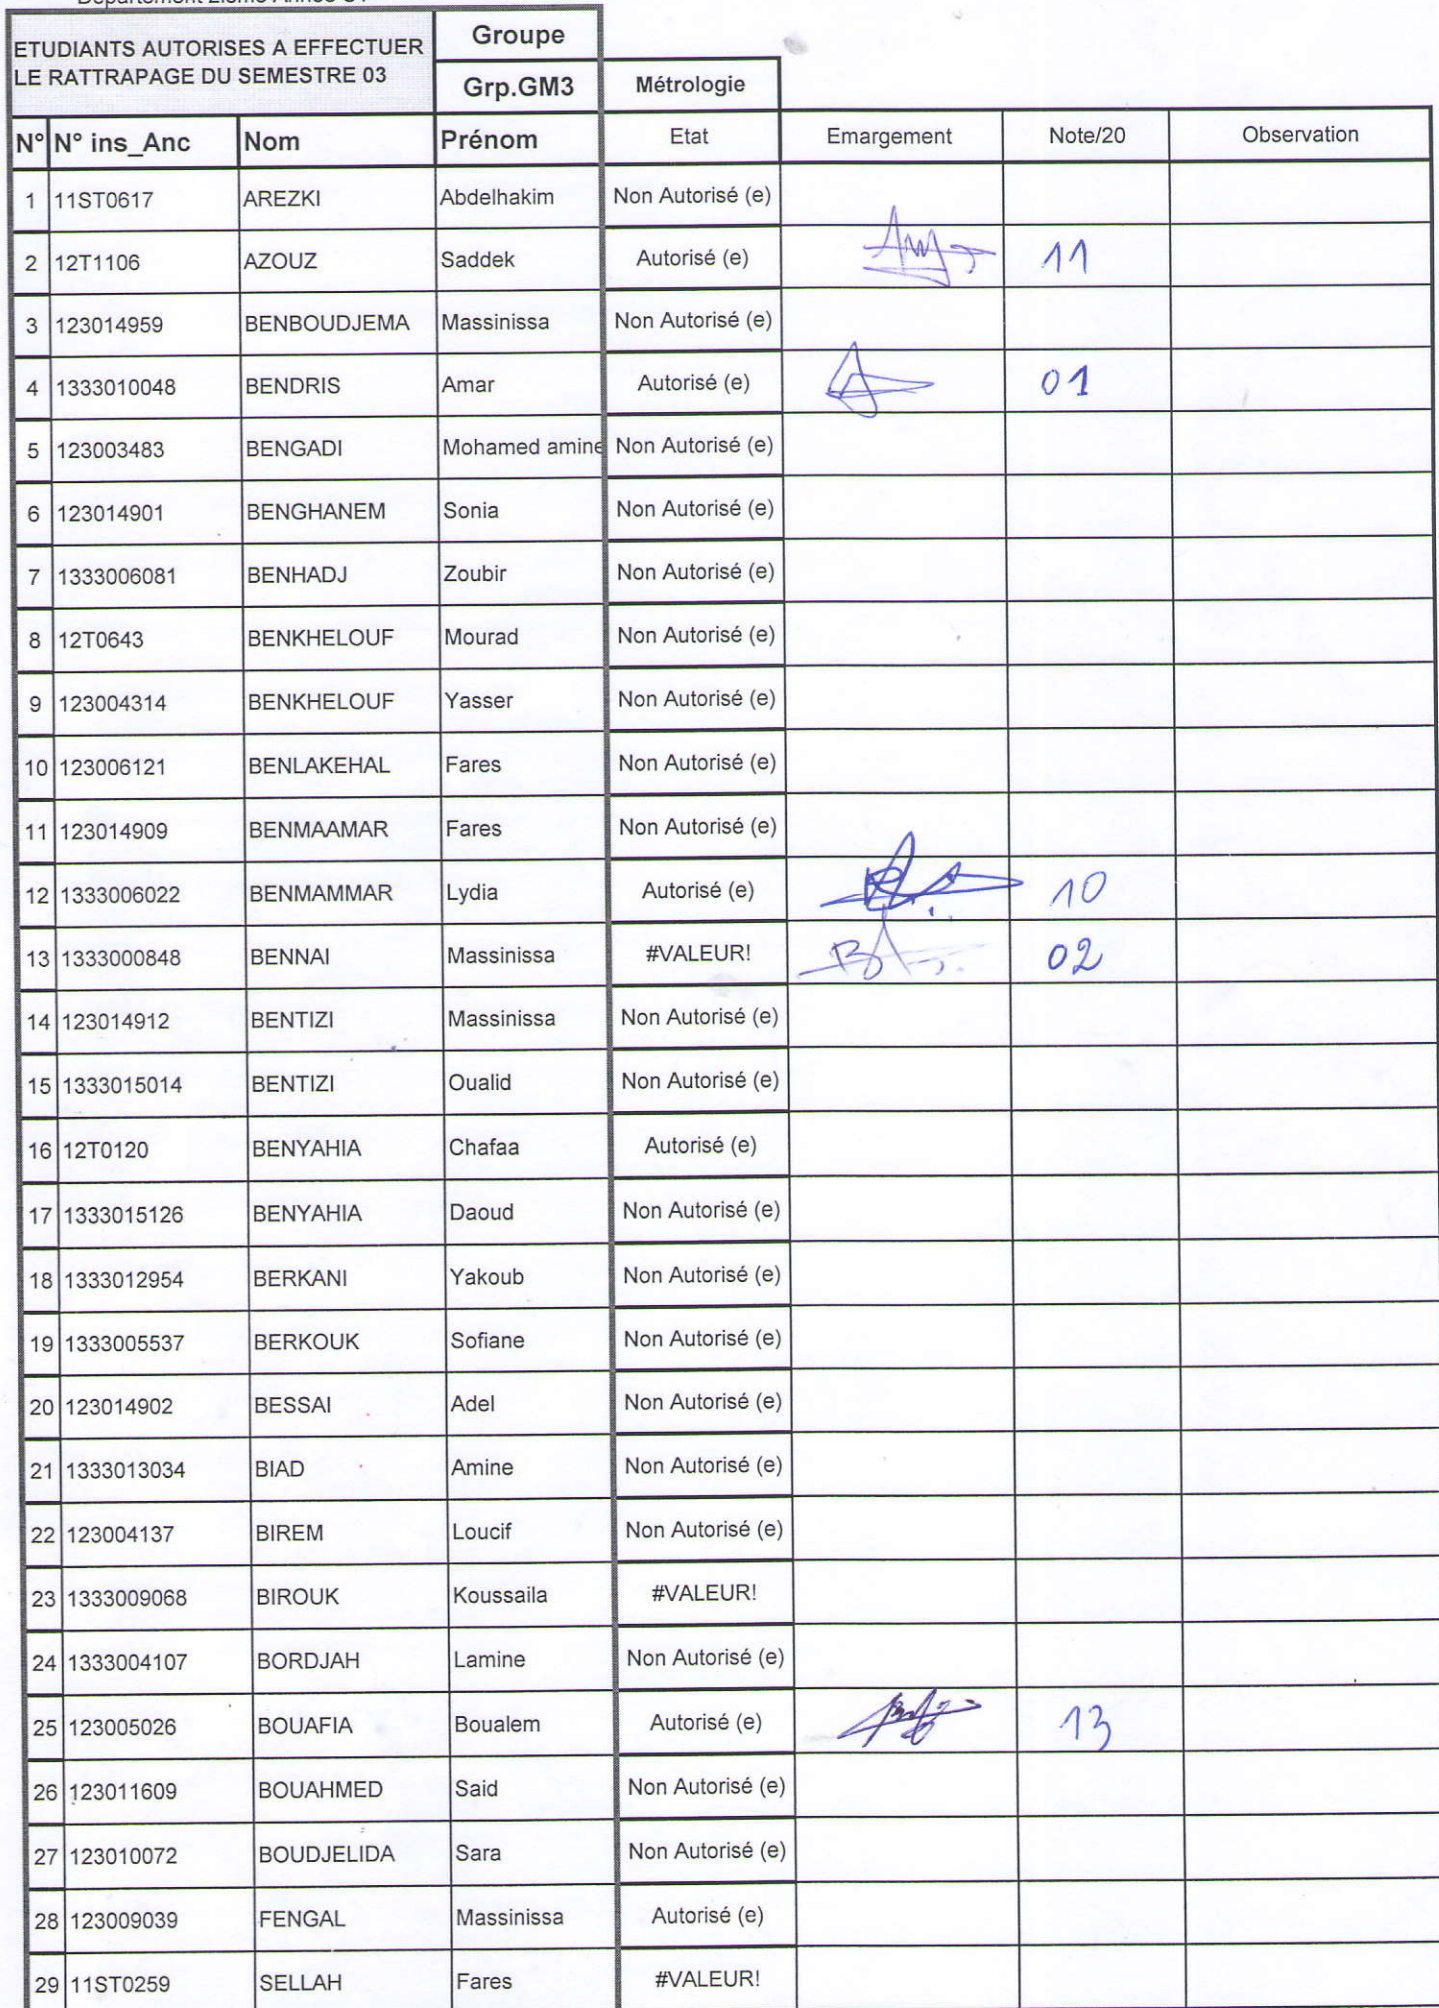 ETUDIANTS AUTORISES A EFFECTUER Groupe
LE RATTRAPAGE DU SEMESTRE 03 Grp.GM3 Métrologie
N° N° ins_Anc Nom Prénom Etat Emargement Note/20 Observation
1 11ST0617 AREZKI Abdelhakim Non Autorisé (e)
2 12T1106 AZOUZ Saddek Autorisé (e) 11
3 123014959 BENBOUDJEMA Massinissa Non Autorisé (e)
4 1333010048 BENDRIS Amar Autorisé (e) 01
5 123003483 BENGADI Mohamed amine Non Autorisé (e)
6 123014901 BENGHANEM Sonia Non Autorisé (e)
7 1333006081 BENHADJ Zoubir Non Autorisé (e)
8 12T0643 BENKHELOUF Mourad Non Autorisé (e)
9 123004314 BENKHELOUF Yasser Non Autorisé (e)
10 123006121 BENLAKEHAL Fares Non Autorisé (e)
11 123014909 BENMAAMAR Fares Non Autorisé (e)
12 1333006022 BENMAMMAR Lydia Autorisé (e) 10
13 1333000848 BENNAI Massinissa #VALEUR! 02
14 123014912 BENTIZI Massinissa Non Autorisé (e)
15 1333015014 BENTIZI Oualid Non Autorisé (e)
16 12T0120 BENYAHIA Chafaa Autorisé (e)
17 1333015126 BENYAHIA Daoud Non Autorisé (e)
18 1333012954 BERKANI Yakoub Non Autorisé (e)
19 1333005537 BERKOUK Sofiane Non Autorisé (e)
20 123014902 BESSAI Adel Non Autorisé (e)
21 1333013034 BIAD Amine Non Autorisé (e)
22 123004137 BIREM Loucif Non Autorisé (e)
23 1333009068 BIROUK Koussaila #VALEUR!
24 1333004107 BORDJAH Lamine Non Autorisé (e)
25 123005026 BOUAFIA Boualem Autorisé (e) 13
26 123011609 BOUAHMED Said Non Autorisé (e)
27 123010072 BOUDJELIDA Sara Non Autorisé (e)
28 123009039 FENGAL Massinissa Autorisé (e)
29 11ST0259 SELLAH Fares #VALEUR!